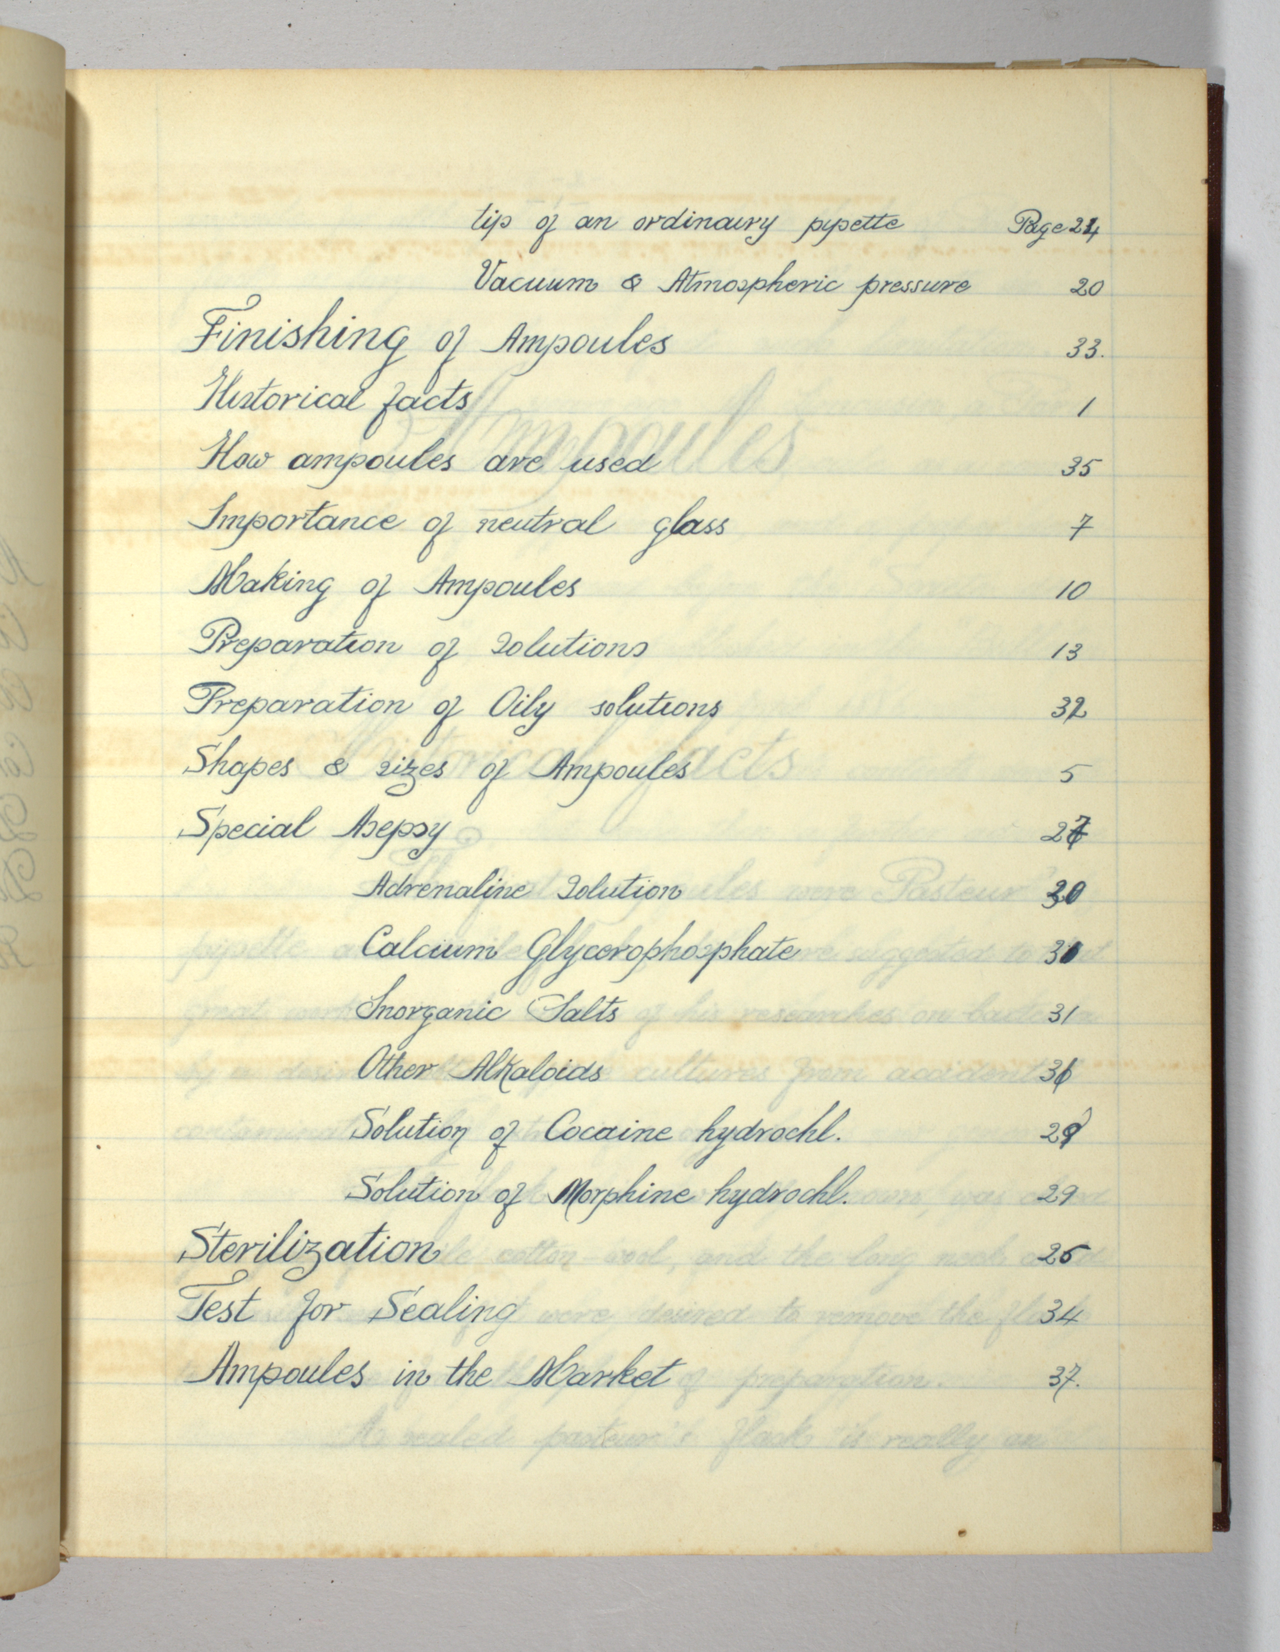 tip of an ordinairy pipette Page 24
Vacuum & Atmospheric pressure 20
Finishing of Ampoules 33.
Historical facts 1
How ampoules are used 35
Importance of neutral glass 7
Making of Ampoules 10
Preparation of Solutions 13
Preparation of Oily solutions 32
Shapes & sizes of Ampoules 5
Special Asepsy 27
Adrenaline Solution 30
Calcium Glycerophosphate 30
Inorganic Salts 31
Other Alkaloids 31
Solution of Cocaine hydrochl. 29
Solution of Morphine hydrochl. 29
Sterilization 25
Test for Sealing 34
Ampoules in the Market 37.